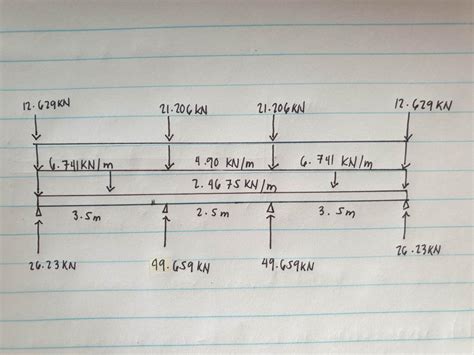 12.629KN 21.206KN 21.206KN 12.629KN
6.741KN/m 4.90 KN/m 6.741 KN/m
2.4675KN/m
3.5m 2.5m 3.5m
26.23KN 49.659KN 49.659KN 26.23KN